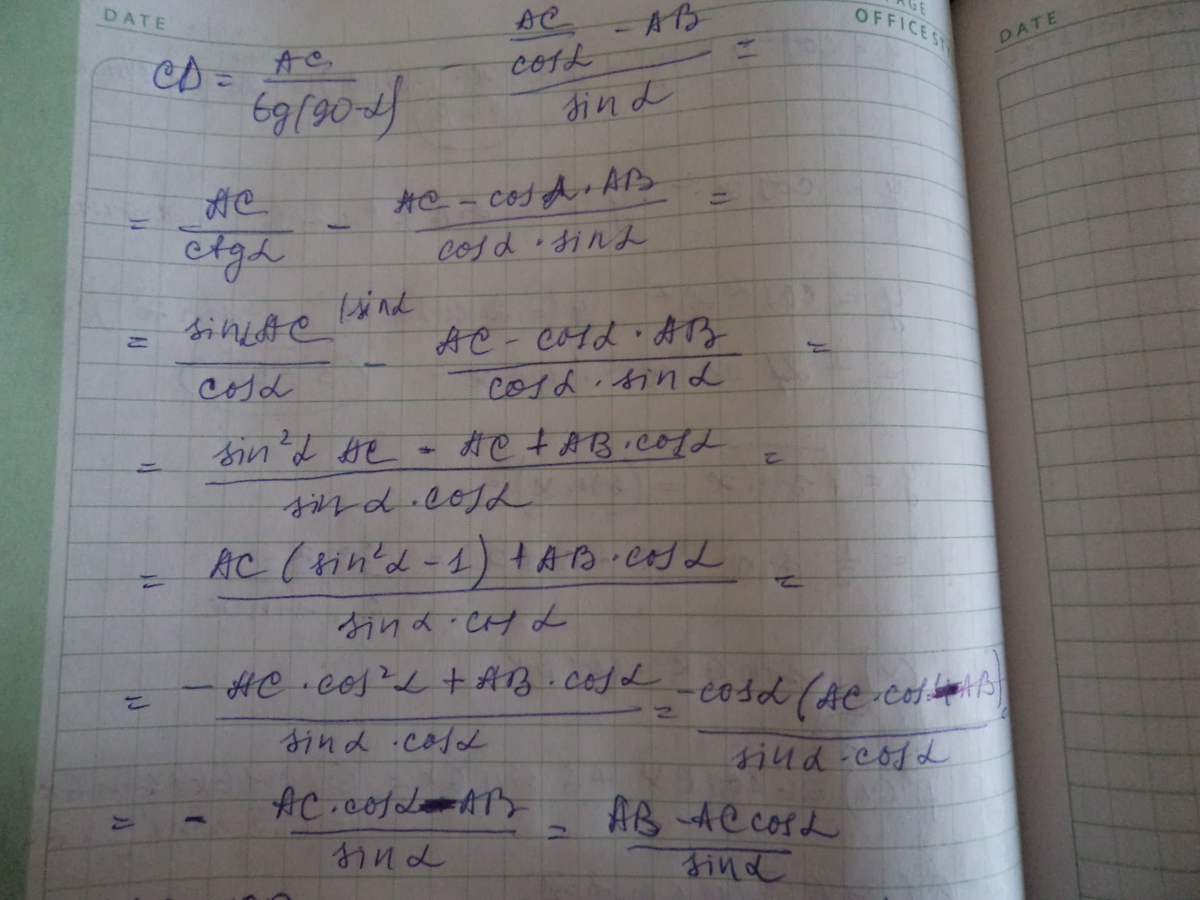 DATE
PAGE
OFFICE ST
DATE
CD = AC / tg(90-α) - (AC/cosα - AB) / sin α =
= AC / ctgα - (AC - cosα · AB) / (cosα · sinα) =
= sinαAC / cosα |sinα - (AC - cosα · AB) / (cosα · sinα) =
= (sin²α AC - AC + AB · cosα) / (sinα · cosα) =
= (AC (sin²α - 1) + AB · cosα) / (sinα · cosα) =
= (- AC · cos²α + AB · cosα) / (sinα · cosα) = -cosα (AC · cosα - AB) / (sinα · cosα) =
= - (AC · cosα - AB) / sinα = (AB - AC cosα) / sinα